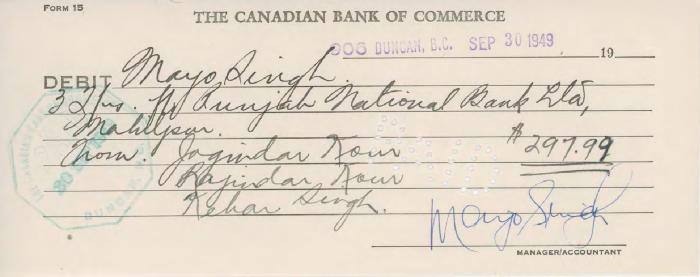 FORM 15
THE CANADIAN BANK OF COMMERCE
906 DUNCAN, B.C. SEP 30 1949 19
DEBIT Mayo Singh.
3 Tfrs. Punjab National Bank Ltd,
Mahilpur.
Jogindar Kour $297.99
Rajindar Kour
Kehar Singh.
Mayo Singh
MANAGER/ACCOUNTANT